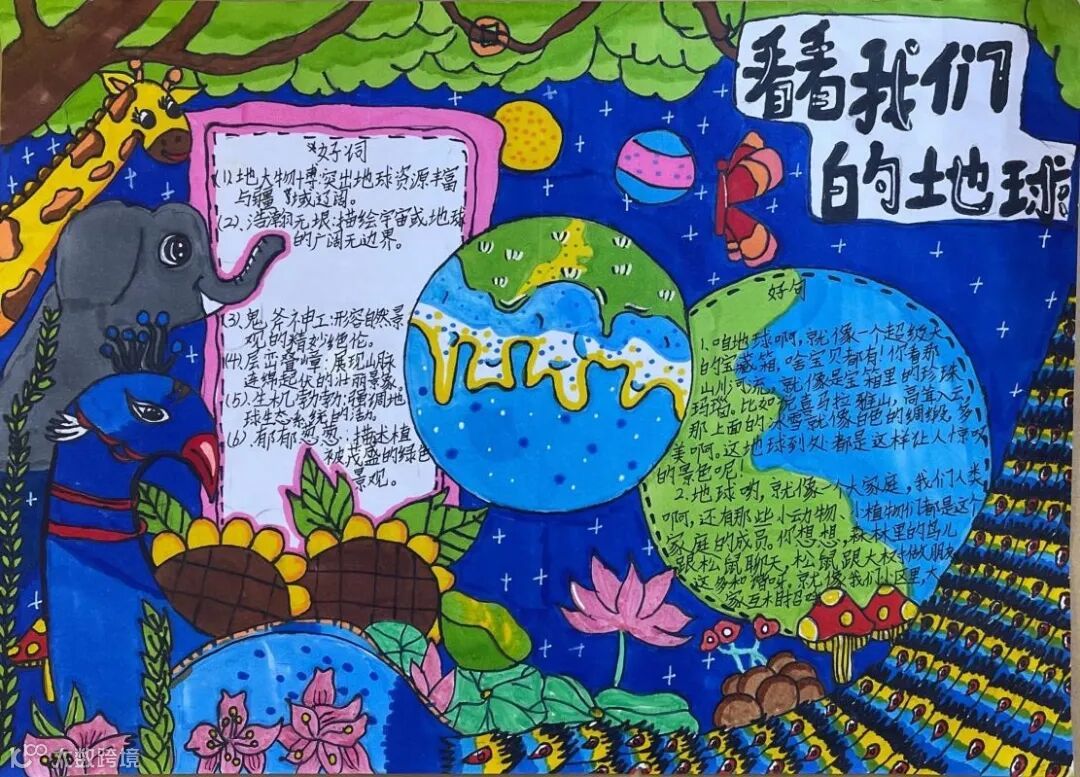 看看我们
的地球
好词
(1).地大物博:突出地球资源丰富
与疆域辽阔。
(2).浩瀚无垠:描绘宇宙或地球
的广阔无边界。
(3).鬼斧神工:形容自然景
观的精妙绝伦。
(4).层峦叠嶂:展现山脉
连绵起伏的壮丽景象。
(5).生机勃勃:强调地
球生态系统的活力。
(6).郁郁葱葱:描述植
被茂盛的绿色
景观。
好句
1.咱地球啊,就像一个超级大
的宝藏箱,啥宝贝都有!你看那
山川河流。就像是宝箱里的珍珠
玛瑙。比如尼喜马拉雅山,高耸入云,
那上面的冰雪就像白色的绸缎,多
美啊。这地球到处都是这样让人惊叹
的景色呢!
2.地球哟,就像一个大家庭,我们人类
啊,还有那些小动物、小植物们都是这个
家庭的成员。你想想,森林里的鸟儿
跟松鼠聊天,松鼠跟大树做朋友
这多和谐呀,就像我们小区里,大
家互相招呼
大数跨境